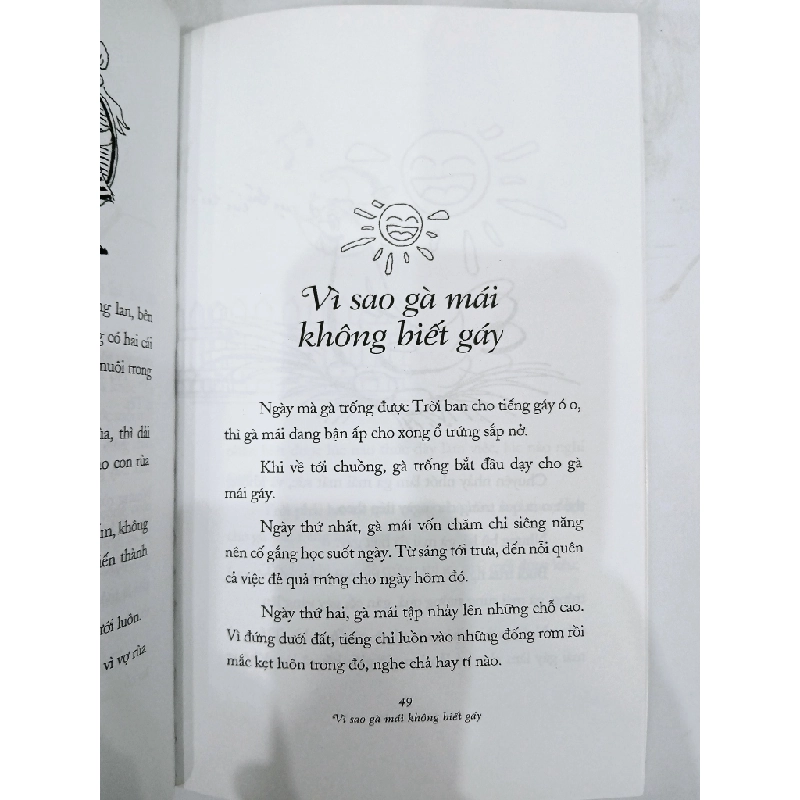 ng lan, bên
g có hai cái
nuôi trong
ùa, thì dái
ho con rùa
ím, không
iến thành
ười luôn.
vì vợ rùa
Vì sao gà mái
không biết gáy
Ngày mà gà trống được Trời ban cho tiếng gáy ó o,
thì gà mái đang bận ấp cho xong ổ trứng sắp nở.
Khi về tới chuồng, gà trống bắt đầu dạy cho gà
mái gáy.
Ngày thứ nhất, gà mái vốn chăm chỉ siêng năng
nên cố gắng học suốt ngày. Từ sáng tới trưa, đến nỗi quên
cả việc đẻ quả trứng cho ngày hôm đó.
Ngày thứ hai, gà mái tập nhảy lên những chỗ cao.
Vì đứng dưới đất, tiếng chỉ luồn vào những đống rơm rồi
mắc kẹt luôn trong đó, nghe chả hay tí nào.
49
Vì sao gà mái không biết gáy